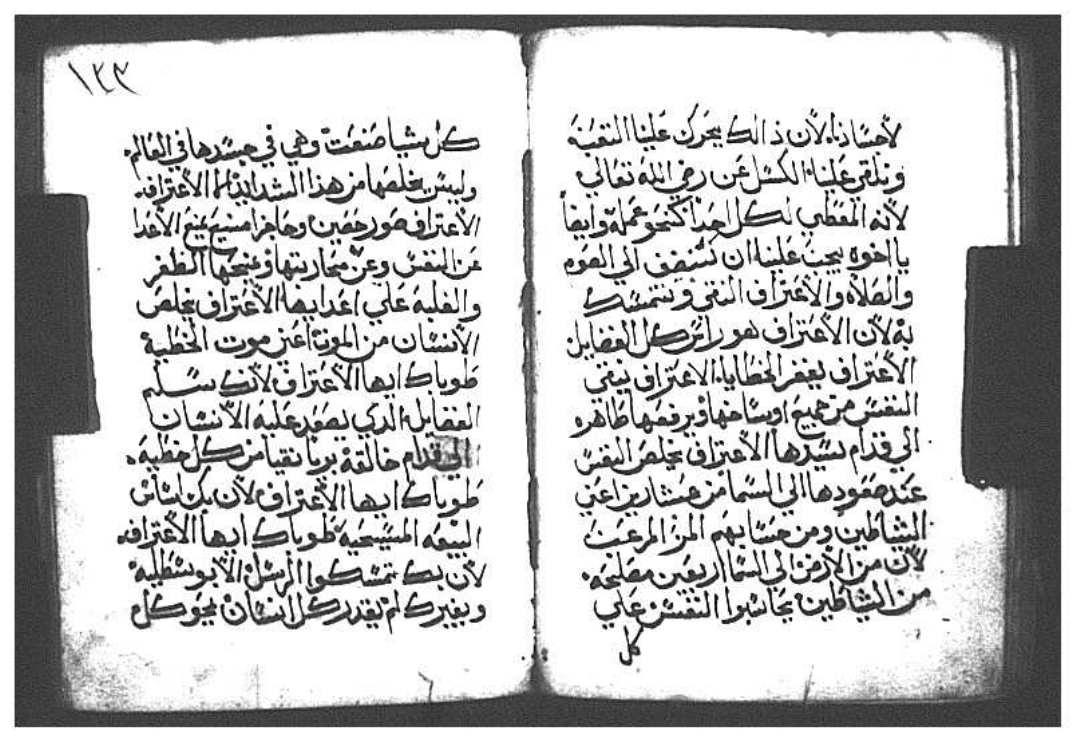 لأجسادنا. لأن ذالك يحرك علينا النقمة
وتلقي علينا الكسل عن رضي الله تعالي
لأنه المعطي لكل احدا كنحو عمله وايضاً
يا اخوه يجب علينا ان نستفيق الي الصوم
والصلاه والأعتراف النقي ونتمسك
به لأن الأعتراف هو راس كل الفضايل
الأعتراف يغفر الخطايا. الاعتراف ينقي
النفس من جميع اوساخها ويرفعها طاهره
الي قدام سيدها الأعتراف يخلص النفس
عند صعودها الي السما من عشارين اعني
الشياطين ومن حسابهم المر المرعب
لأن من الأرض الي السما اربعين مصلحه
من الشياطين يحاسبوا النفس علي
كل
١٢٣
كل شيا صنعت وهي في جسدها في العالم.
وليس يخلصها من هذا الشدايد الا الأعتراف.
الأعتراف صور حصين وحاجز منيع يمنع الأعدا
عن النفس وعن محاربتها ويمنحها الظفر
والغلبه علي اعدايها الأعتراف يخلص
الأنسان من الموت اعني موت الخطية
طوباك ايها الأعتراف لأنك سلم
الفضايل الذي يصعد عليه الأنسان
الي قدام خالقة بريا نقيا من كل خطيه.
طوباك ايها الأعتراف لأن بك اساس
البيعه المسيحية طوباك ايها الأعتراف.
لأن بك تمسكوا الرسل الأبوسطليه
وبغيرك لم يقدر كل انسان نحو كلم